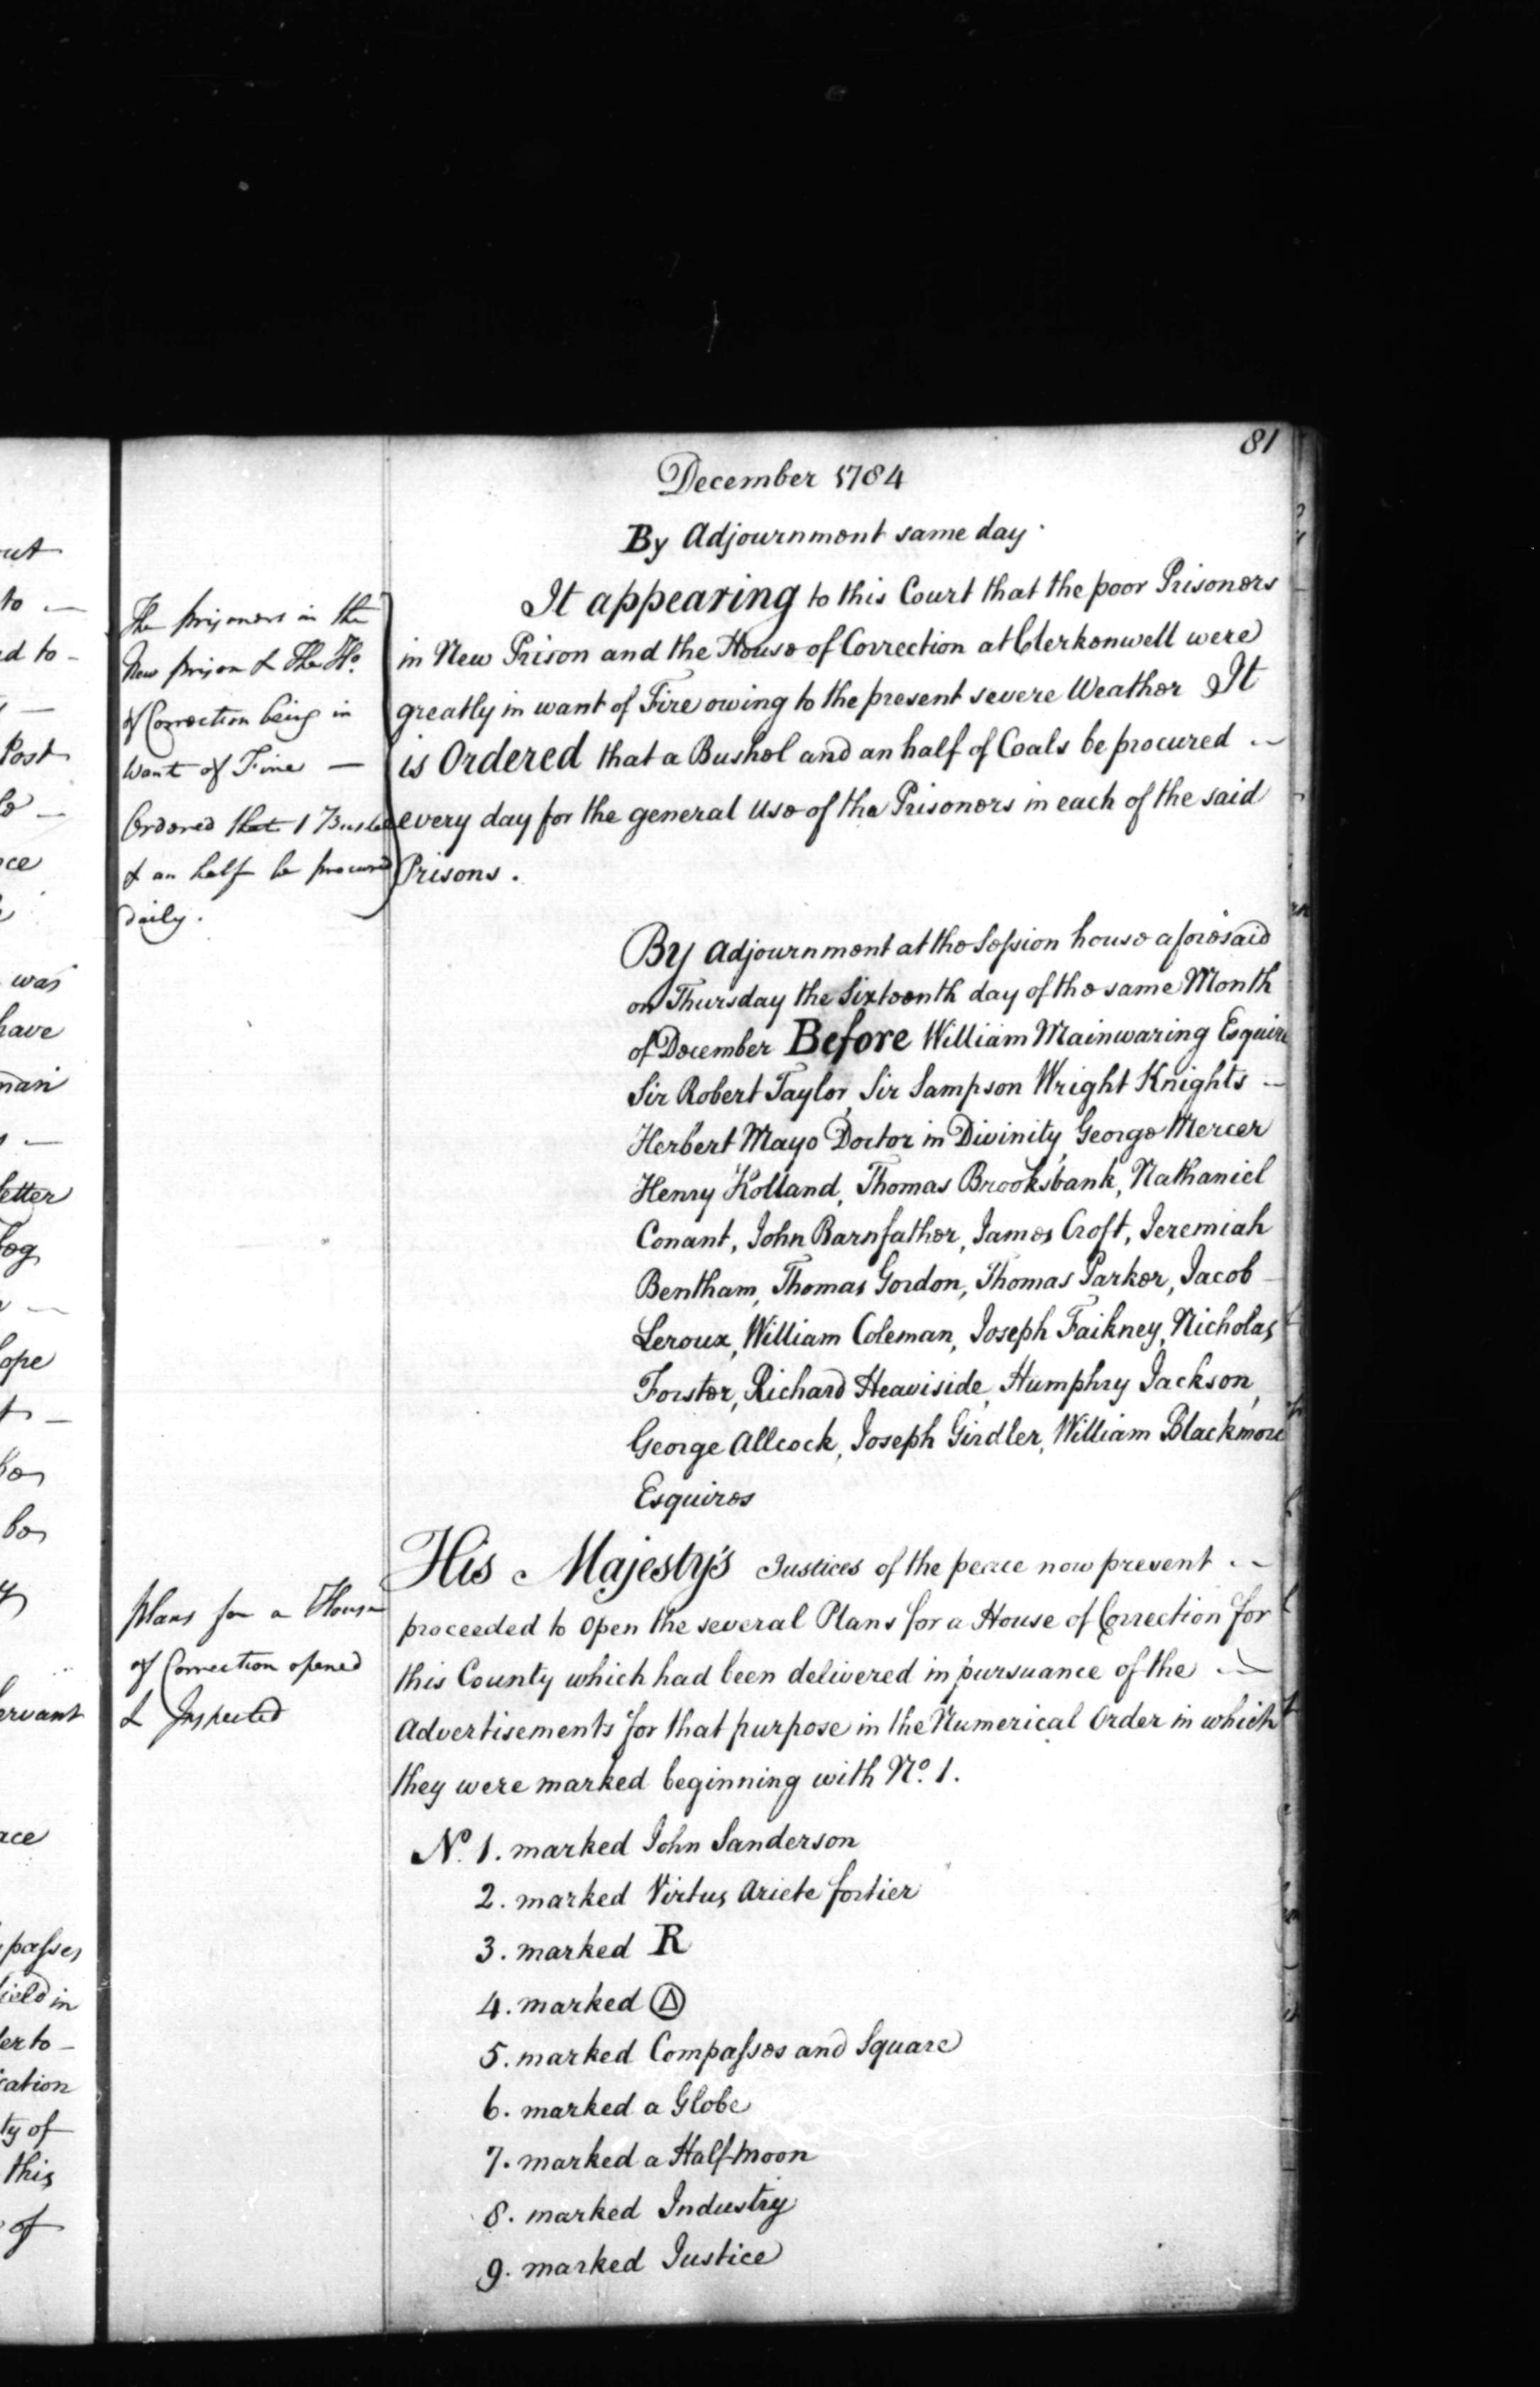 81
December 1784
By Adjournment same day.
It appearing to this Court that the poor Prisoners
in New Prison and the House of Correction at Clerkenwell were
greatly in want of Fire owing to the present severe Weather It
is Ordered that a Bushel and an half of Coals be procured
every day for the general use of the Prisoners in each of the said
Prisons.
The prisoners in the
New prison & the Ho.
of Correction being in
want of Fire —
Ordered that 1 Bushel
& an half be procured
daily.
By Adjournment at the Session house aforesaid
on Thursday the Sixteenth day of the same Month
of December Before William Mainwaring Esquire
Sir Robert Taylor, Sir Sampson Wright Knights —
Herbert Mayo Doctor in Divinity, George Mercer
Henry Holland, Thomas Brooksbank, Nathaniel
Conant, John Barnfather, James Croft, Jeremiah
Bentham, Thomas Gordon, Thomas Parker, Jacob
Leroux, William Coleman, Joseph Faikney, Nicholas
Forster, Richard Heaviside, Humphry Jackson,
George Allcock, Joseph Girdler, William Blackmore
Esquires
His Majesty's Justices of the peace now present
proceeded to open the several Plans for a House of Correction for
this County which had been delivered in pursuance of the
Advertisements for that purpose in the Numerical Order in which
they were marked beginning with No. 1.
plans for a House
of Correction opened
& Inspected
No. 1. marked John Sanderson
2. marked Virtus Ariete fortier
3. marked R
4. marked
5. marked Compasses and Square
6. marked a Globe
7. marked a Half-Moon
8. marked Industry
9. marked Justice
ut
to —
ed to -
Post
ce
was
have
man
letter
ope
ervant
ace
passes
ield in
er to -
cation
ty of
this
of